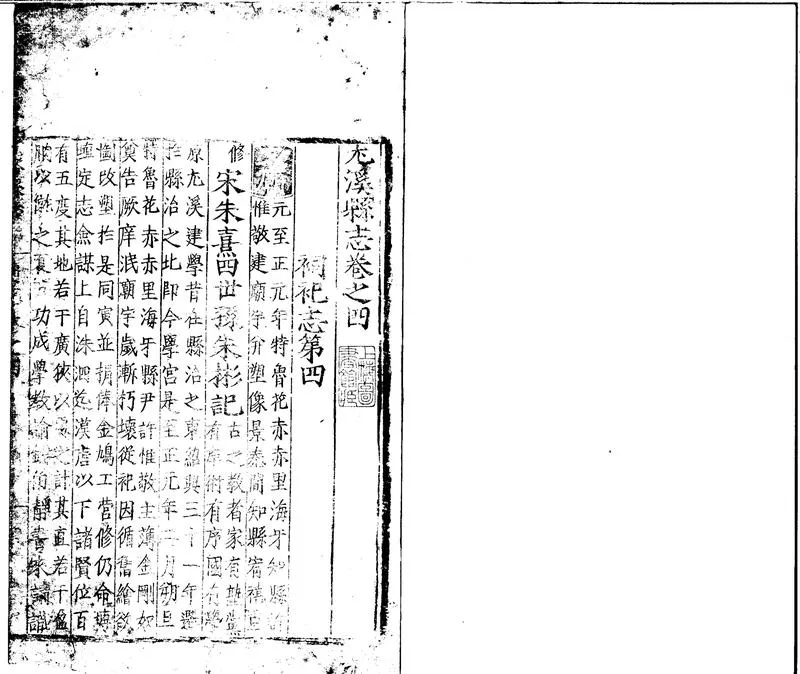 尤溪縣志卷之四
祠祀志第四
元至正元年特魯花赤赤里海牙知縣許
惟敬建廟宇并塑像景泰間知縣宥禧重
修
宋朱熹四世孫朱彬記
古之教者家有塾黨
有庠術有序國有學
原尤溪建學昔在縣治之東紹興三十一年遷
於縣治之北即今學宮是至正元年二月朔旦
特魯花赤赤里海牙縣尹許惟敬主簿金剛奴
奠告厥庠泯廟宇歲漸朽壞從祀因循舊繪
改塑於是同寅並捐俸金鳩工營修仍命塼
定志僉謀上自洙泗迄漢唐以下諸賢位百
有五度其地若干廣狹以之計其直若干
之功成學教諭靜書來請識
上海圖書館藏